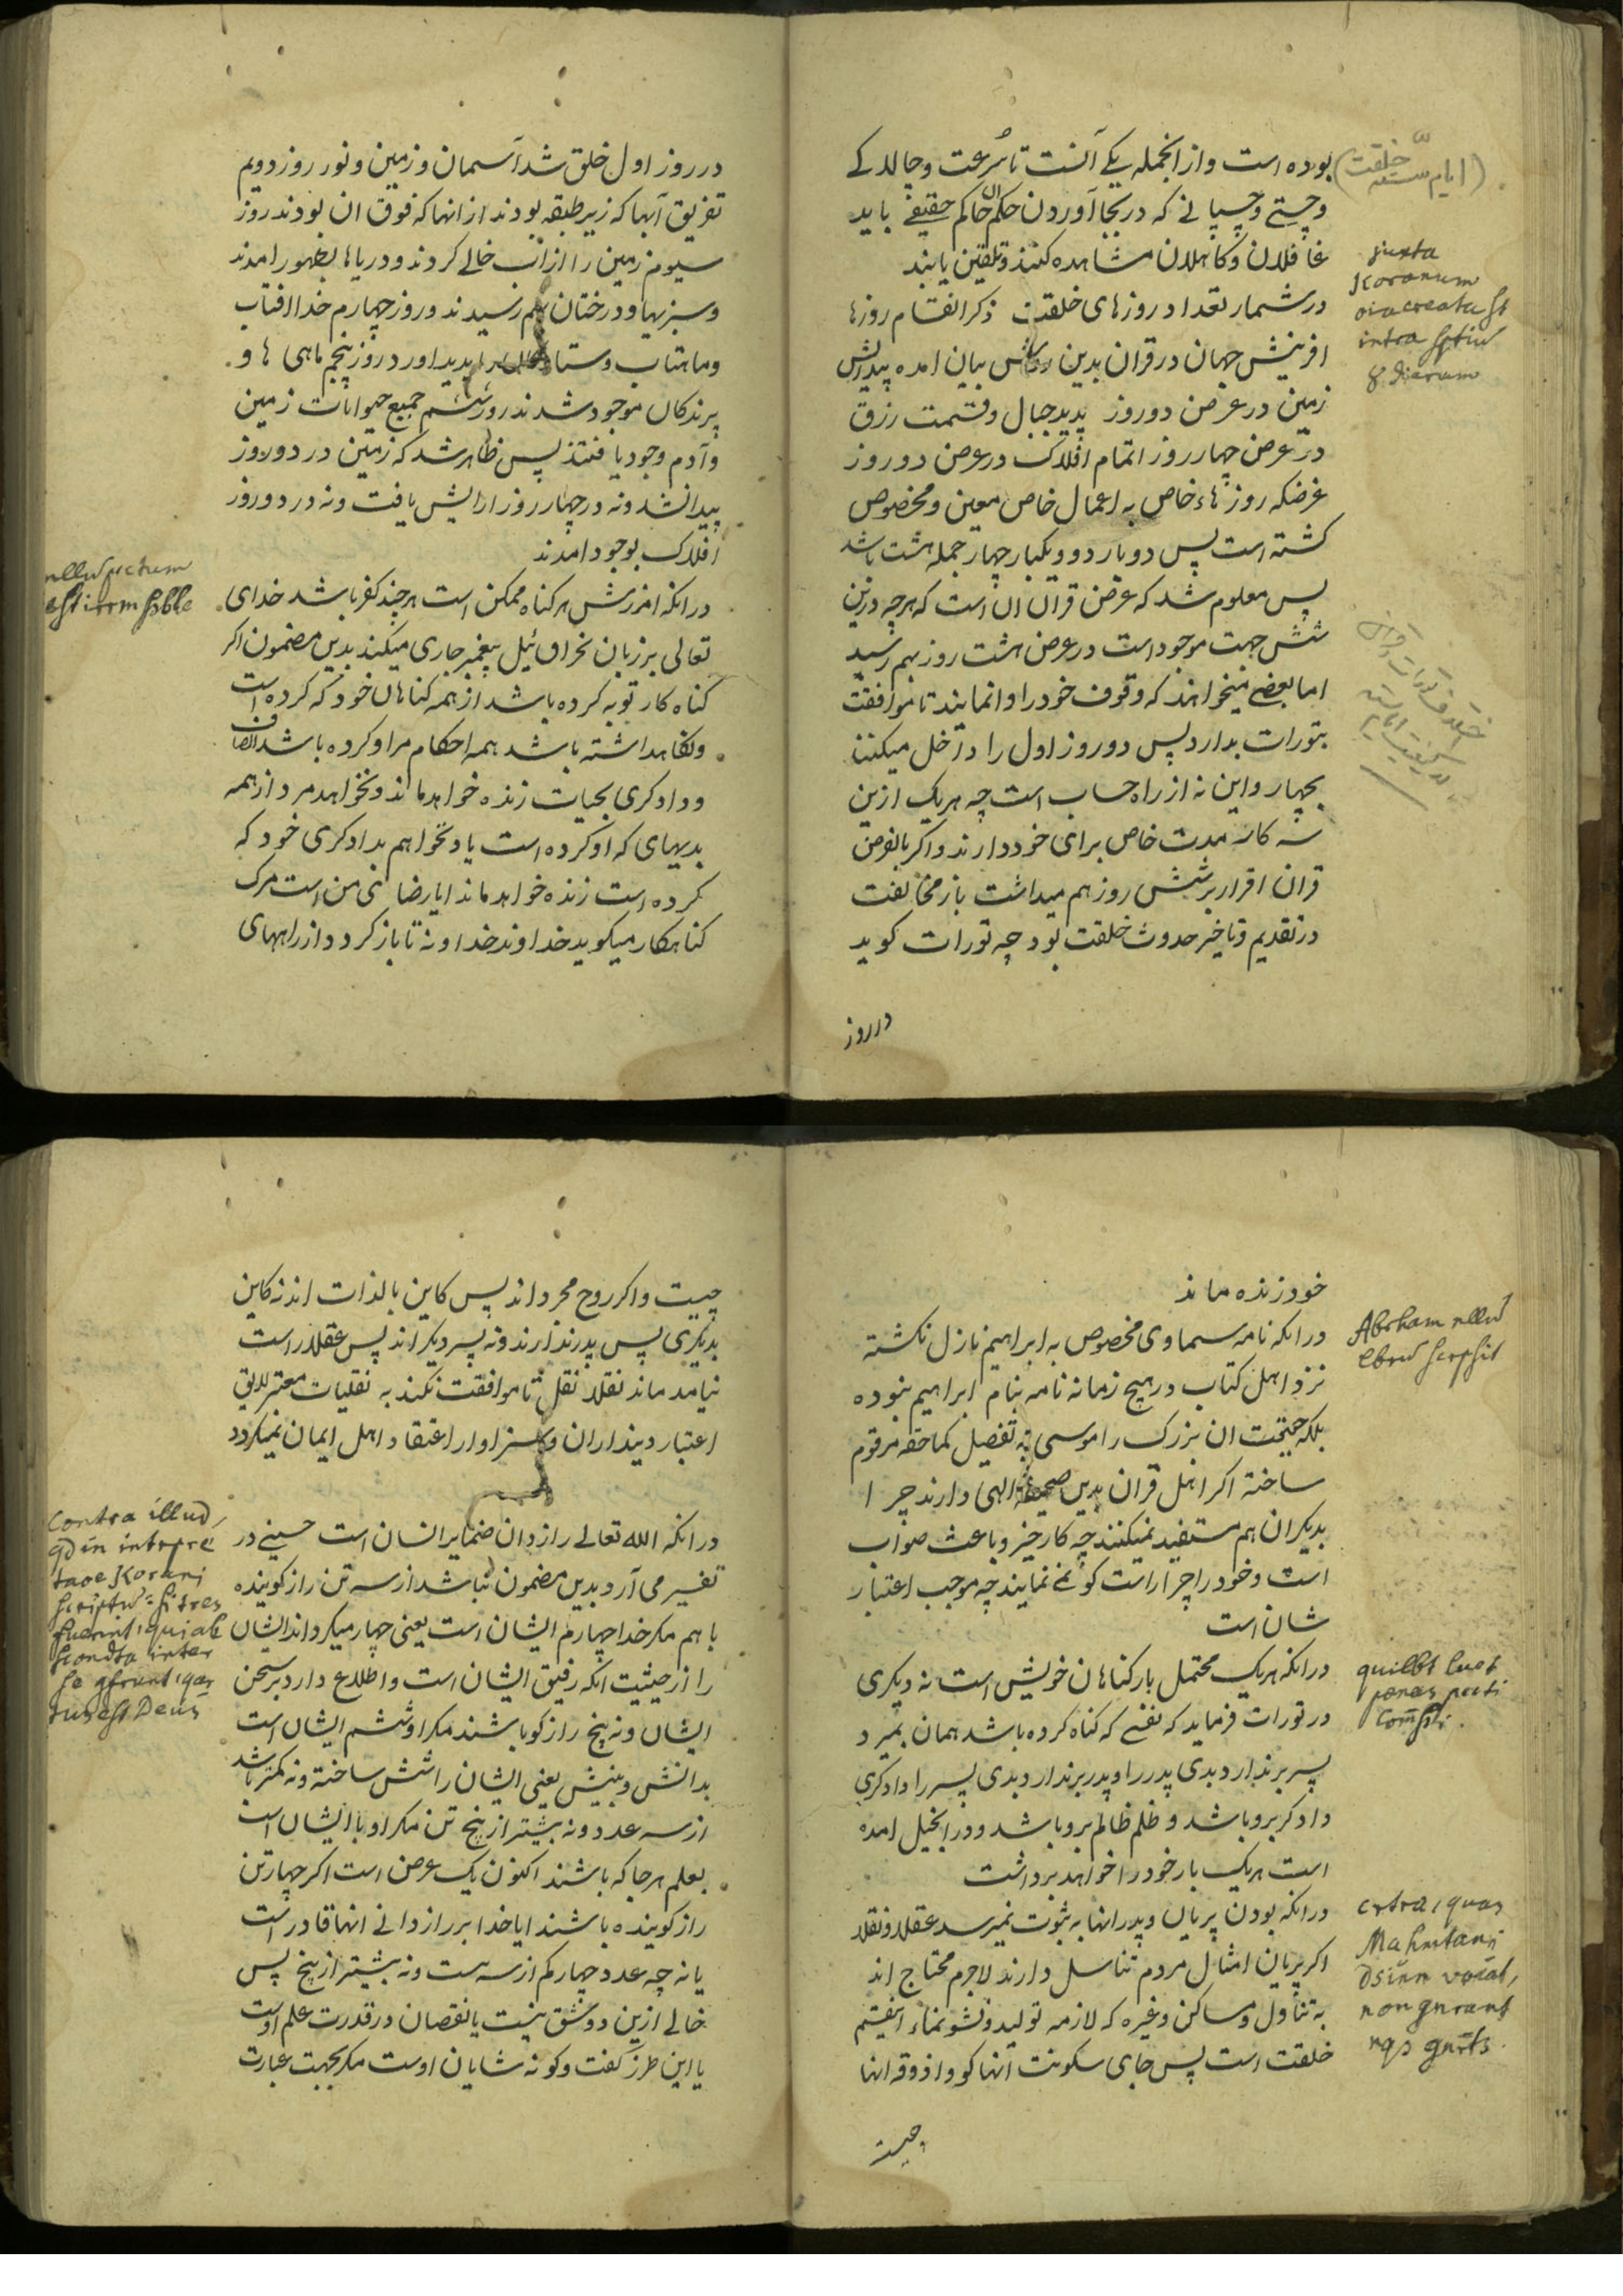 بوده است و از انجمله یکے آنست تا سُرعت و چالاکے
و چستے و چسپانے که در بجا آوردن حکم ان حاکم حقیقے باید
غافلان و کاهلان مشاهده کنند و تلقین یابند
در شمار تعداد روزهای خلقت ذکر انقسام روزها
افرینش جهان در قران بدین بیان امده پیدایش
زمین در عرض دو روز پدید جبال و قسمت رزق
در عرض چهار روز اتمام افلاک در عرض دو روز
غرضکه روزهاء خاص به اعمال خاص معین و مخصوص
کشته است پس دو بار دو و یکبار چهار جمله هشت باشد
پس معلوم شد که غرض قران ان است که هر چه درین
شش جهت موجود است در عرض هشت روز بهم رسید
اما بعضے میخواهند که وقوف خود را وانمایند تا موافقت
بتورات بدارد پس دو روز اول را داخل میکنند
بچهار و این نه از راه حساب است چه هر یک ازین
سه کار مدت خاص برای خود دارند و اکر بالفرض
قران اقرار بر شش روز هم میداشت باز مخالفت
در تقدیم و تاخیر حدوث خلقت بود چه تورات کوید
در روز
(ایام ستّه خلقت)
juxta
Koranum
oia creata st
intra sptiũ
8 dierum
در روز اول خلق شد آسمان و زمین و نور روز دویم
تفریق آبها که زیر طبقه بودند از انها که فوق ان بودند روز
سیوم زمین را از اب خالے کردند و دریاها بظهور امدند
و سبزیها و درختان بهم رسیدند و روز چهارم خدا افتاب
و ماهتاب و ستار پدید اورد روز پنجم ماهی ها و
پرندکان موجود شدند روز ششم جمیع حیوانات زمین
و آدم وجود یافتند پس ظاهر شد که زمین در دو روز
پیدا نشد و نه در چهار روز ارایش یافت و نه در دو روز
افلاک بوجود امدند
در انکه امرزش هر کناه ممکن است هر چند کفر باشد خدای
تعالی بر زبان نحزاقئیل پیغمبر جاری میکند بدین مضمون اکر
کناه کار توبه کرده باشد از همه کناهان خود که کرده است
و نکاهداشته باشد همه احکام مرا و کرده باشد انصاف
و دادکری بحیات زنده خواهد ماند و نخواهد مرد از همه
بدیهای که او کرده است یاد نخواهم بدادکری خود که
کرده است زنده خواهد ماند ایا رضائی من است مرک
کناهکار میکوید خداوند خدا و نه تا باز کردد از راههای
nullũ pctum
est irrmssble
خود زنده ماند
در انکه نامه سماوی مخصوص به ابراهیم نازل نکشته
نزد اهل کتاب در هیچ زمانه نامه بنام ابراهیم نبوده
بلکه حقیقت ان بزرک را موسی به تفصیل کما حقه مرقوم
ساخته اکر اهل قران بدین صحیفهٔ الهی دارند چرا
بدیکران هم مستفید نمیکنند چه کار خیر و باعث صواب
است و خود را چرا راست کو نمے نمایند چه موجب اعتبار
شان است
در انکه هر یک محتمل بار کناهان خویش است نه دیکری
در تورات فرماید که نفسے که کناه کرده باشد همان بمیرد
پسر برندارد بدی پدر را و پدر برندارد بدی پسر را دادکری
دادکر برو باشد و ظلم ظالم برو باشد و در انجیل امده
است هر یک بار خود را خواهد برداشت
در انکه بودن پریان و پدر انها به ثبوت نمیرسد عقلا و نقلا
اکر پریان امثال مردم تناسل دارند لاجرم محتاج اند
به تناول و مساکن و غیره که لازمه تولید و نشو نماء اینقسم
خلقت است پس جای سکونت انها کو و اذوقه انها
چیست
Abrham nllũ
lbrũ scrpsit
quilbt luet
pœnas pccti
Com̃ssi.
cxtra, quas
Mahmtani
Dsinn vocat,
non gnrant
nqs gnrts.
چیست و اکر روح مجرد اند پس کاین بالذات اند نه کاین
بدیکری پس پدر ندارند و نه پسر دیکر اند پس عقلا راست
نیامد ماند نقلا نقل تا موافقت نکند به نقلیات معتبر لایق
اعتبار دینداران و سزاوار اعتقاد اهل ایمان نمیکردد
در انکه الله تعالے رازدان ضمایر انسان است حسینے در
تفسیر می آرد بدین مضمون نباشد از سه تن راز کوینده
با هم مکر خدا چهارم ایشان است یعنی چهار میکرداند ایشان
را از حیثیت انکه رفیق ایشان است و اطلاع دارد بر سخن
ایشان و نه پنج راز کو باشند مکر او ششم ایشان است
بدانش و بینش یعنی ایشان را شش ساخته و نه کمتر باشد
از سه عدد و نه بیشتر از پنج تن مکر او با ایشان است
بعلم هر جا که باشند اکنون یک عرض است اکر چهار تن
راز کوینده باشند ایا خدا بر راز دانے انها قادر است
یا نه چه عدد چهار کم از سه است و نه بیشتر از پنج پس
خالے ازین دو شق نیست یا نقصان در قدرت علم اوست
یا این طرز کفت و کو نه شایان اوست مکر بجهت عبارت
Contra illud,
qd in intrpre
taoe Korani
scriptũ: si tres
fuerint, qui ab
scondta inter
se gsrunt, qar
tus est Deus